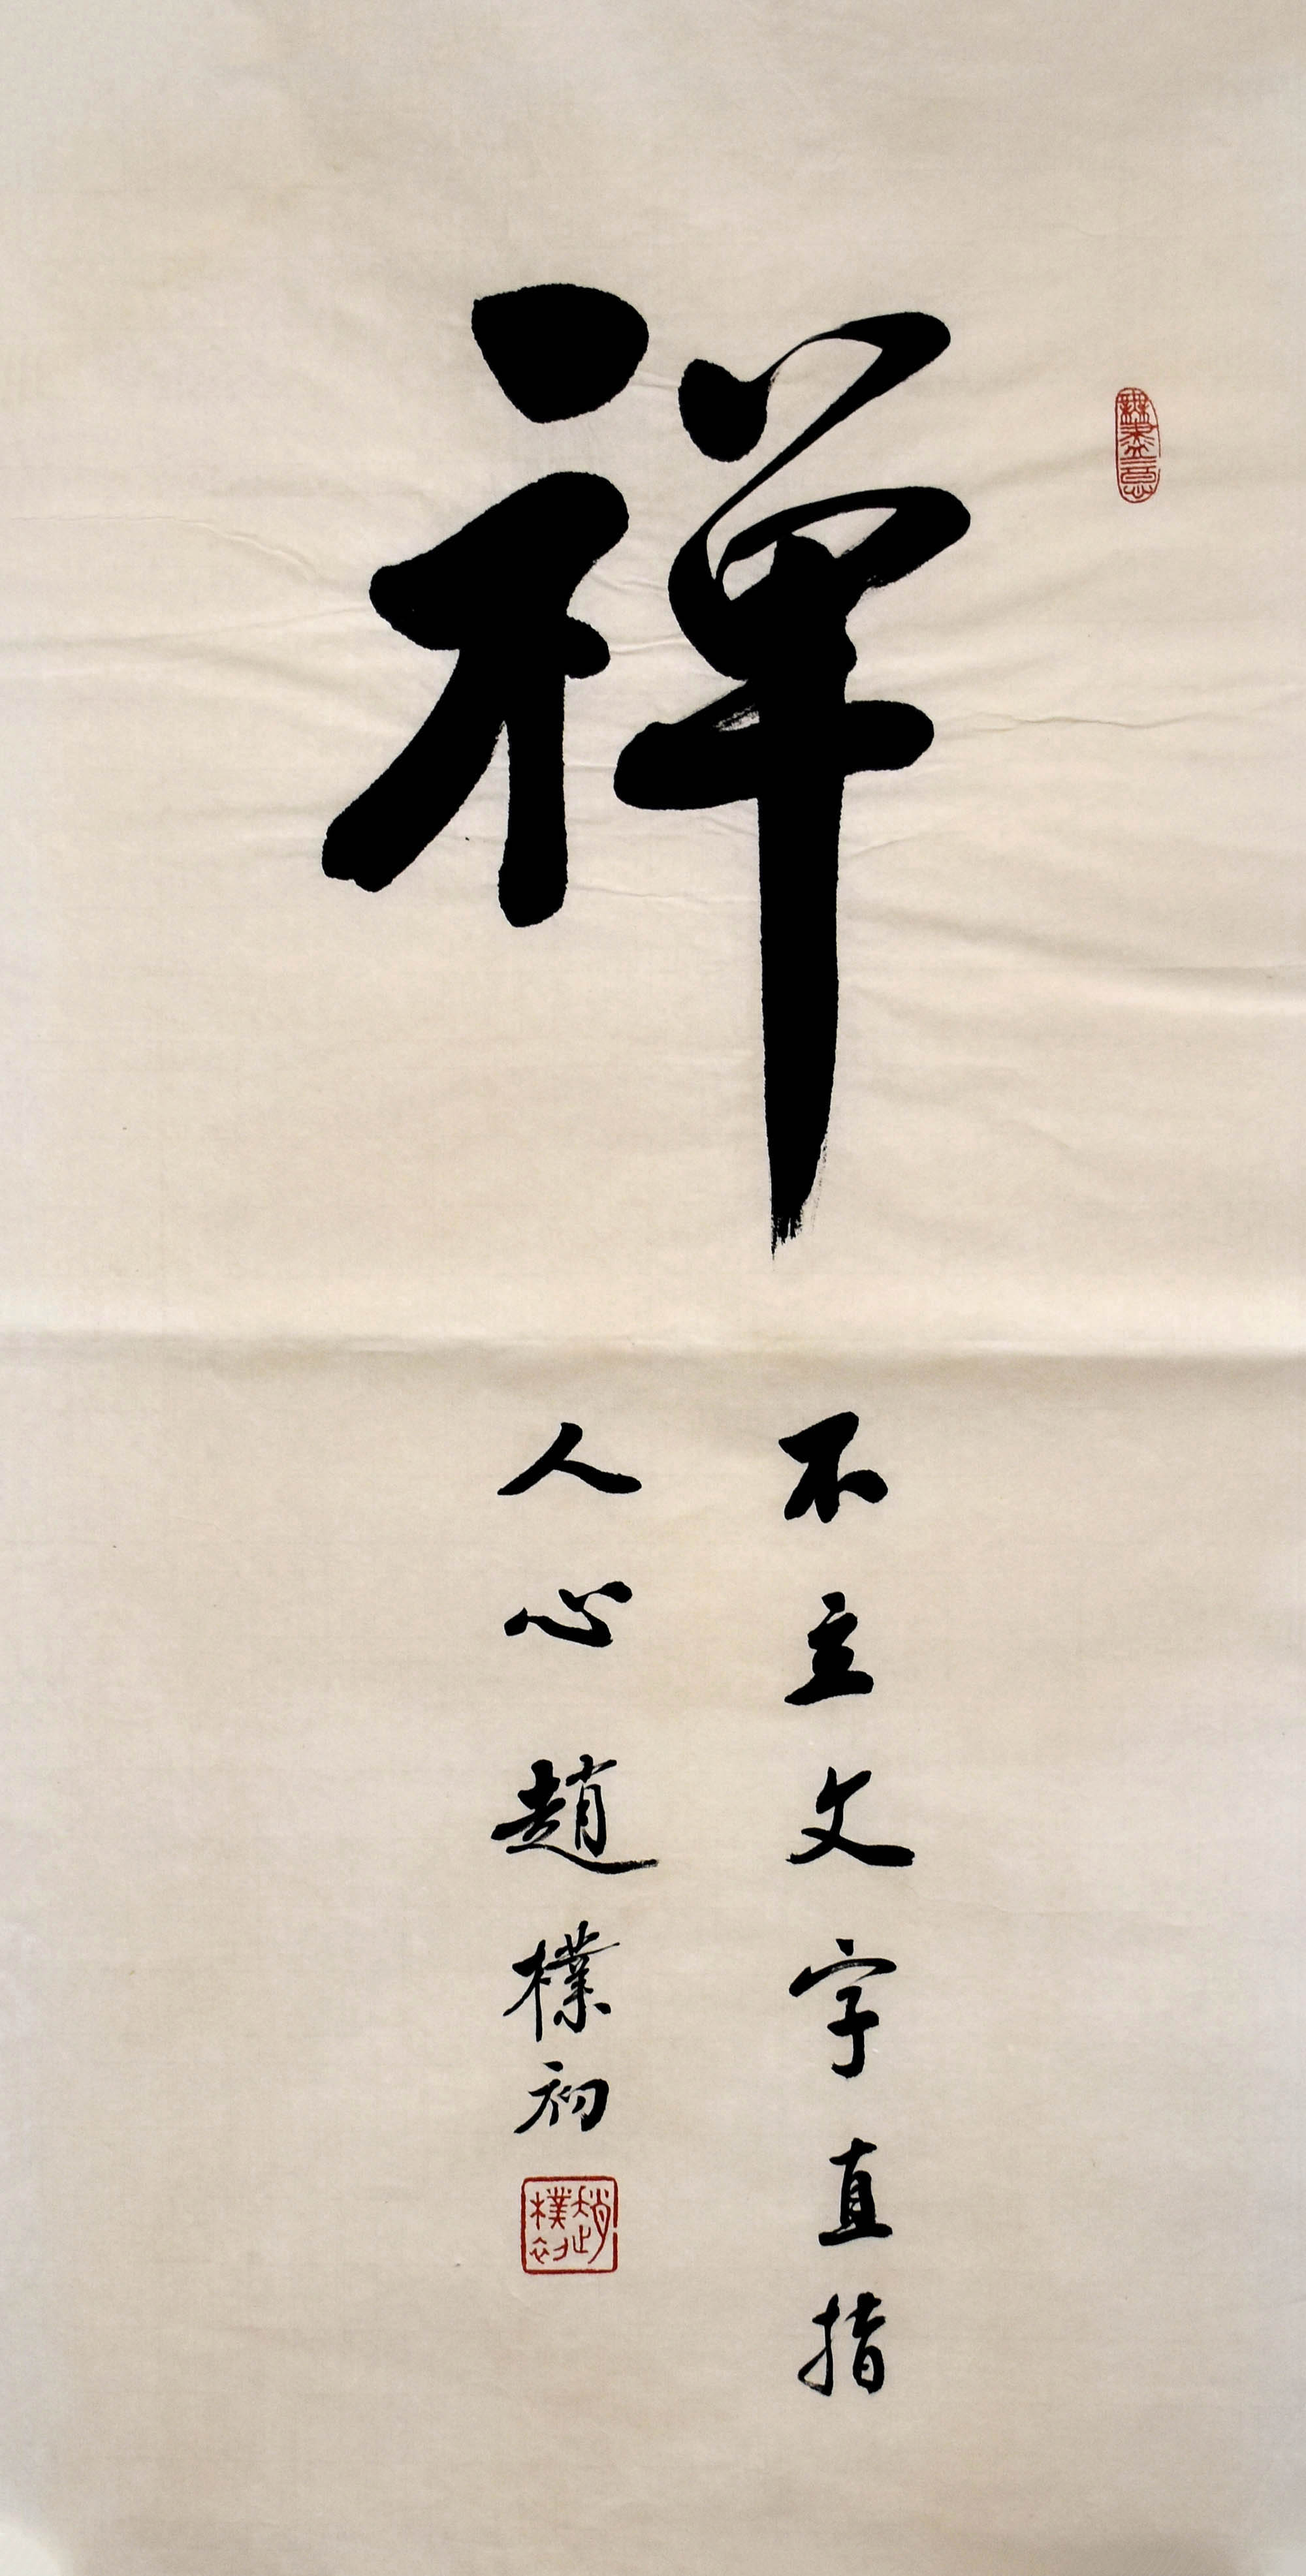 禅
不立文字直指
人心 趙樸初
無盡意
趙樸初